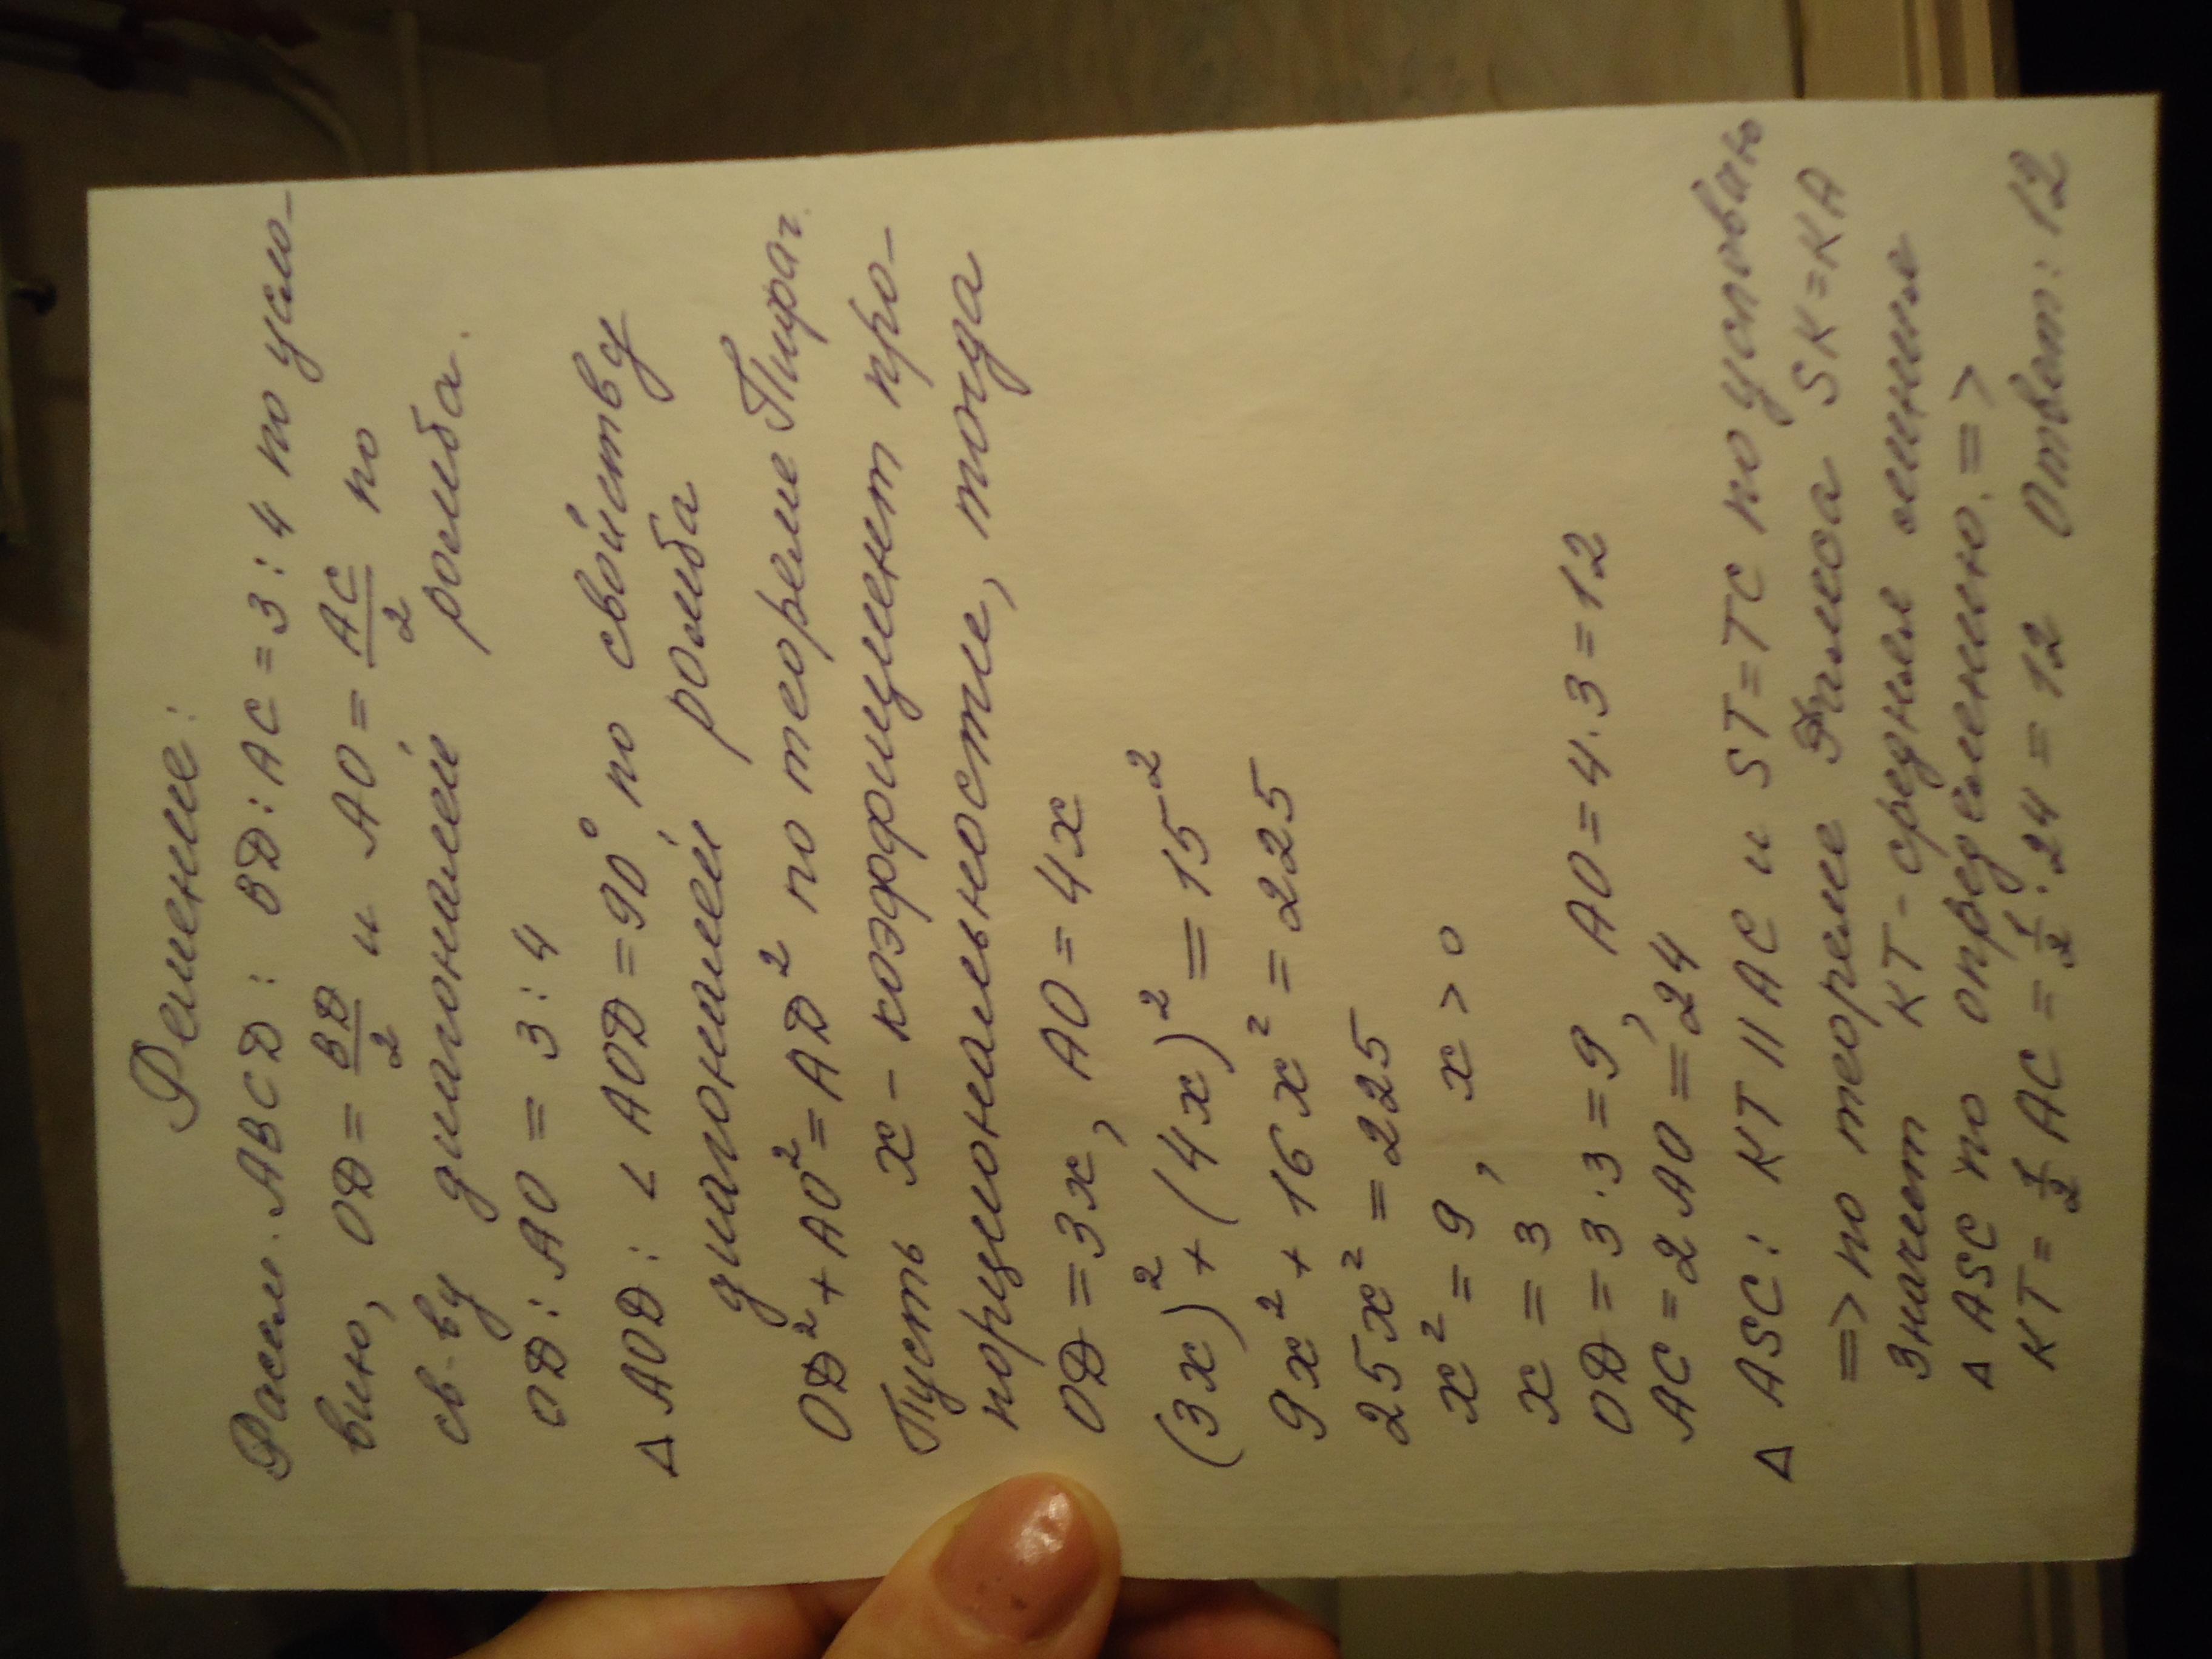 Решение:
Рассм. ABCD: BD:AC=3:4 по усло-
вию, OD=BD/2 и AO=AC/2 по
св-ву диагоналей ромба.
OD:AO=3:4
Δ AOD: ∠AOD=90° по свойству
диагоналей ромба
OD²+AO²=AD² по теореме Пифаг.
Пусть x - коэффициент про-
порциональности, тогда
OD=3x, AO=4x
(3x)²+(4x)²=15²
9x²+16x²=225
25x²=225
x²=9, x>0
x=3
OD=3·3=9, AO=4·3=12
AC=2AO=24
Δ ASC: KT||AC и ST=TC по условию
=> по теореме Фалеса SK=KA
Значит KT-средняя линия
Δ ASC по определению. =>
KT=1/2 AC=1/2·24=12 Ответ: 12